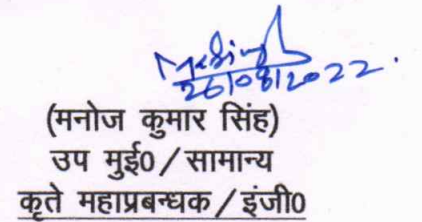 MKSingh
26/08/2022.
(मनोज कुमार सिंह)
उप मुई0/सामान्य
कृते महाप्रबन्धक/इंजी0